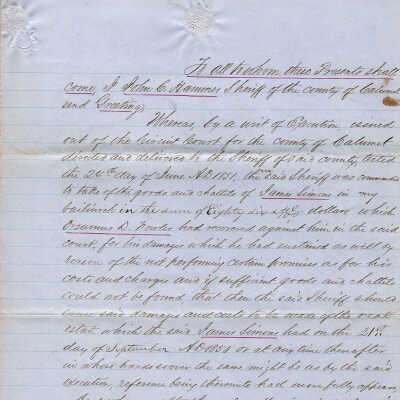 To all to whom these Presents shall
come, I, John C. Hammes Sheriff of the county of Calumet
send Greeting,
Whereas, by a writ of Execution issued
out of the Circuit Court for the county of Calumet
directed and delivered to the Sheriff of said county, tested
the 26th day of June A.D. 1851, the said Sheriff was commanded
to take of the goods and chattels of James Simons in my
bailiwick in the sum of Eighty Six dollars which
D. Fowles had recovered against him in the said
court, for his damages which he had sustained as well by
reason of the not performing certain promises as for his
costs and charges and if sufficient goods and chattels
could not be found, that then the said Sheriff should
cause said damages and costs to be made of the real
estate which the said James Simons had on the 21st
day of September A.D. 1850 or at any time thereafter
in whose hands soever the same might be as by the said
execution, reference being thereunto had more fully appears,